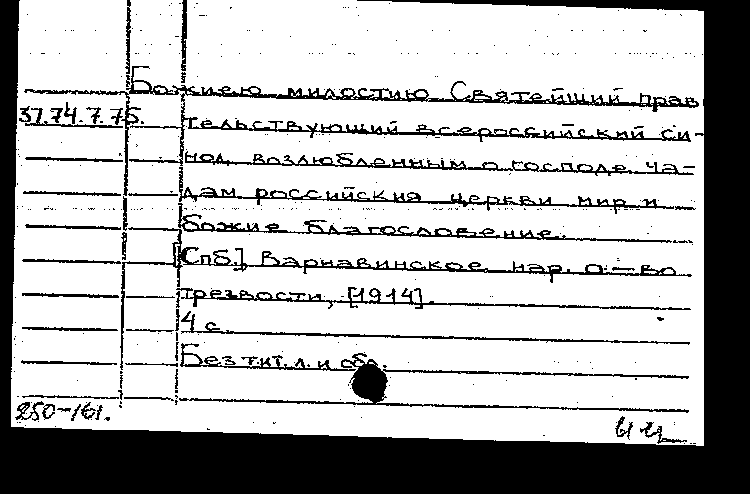 Божиею милостию Святейший прав
37.74.7.75. тельствующий всероссийский си-
нод возлюбленным о господе ча-
дам российския церкви мир и
божие благословение.
[Спб.], Варнавинское нар. о-во
трезвости, [1914].
4 с.
Без тит. л. и обл.
250-161.